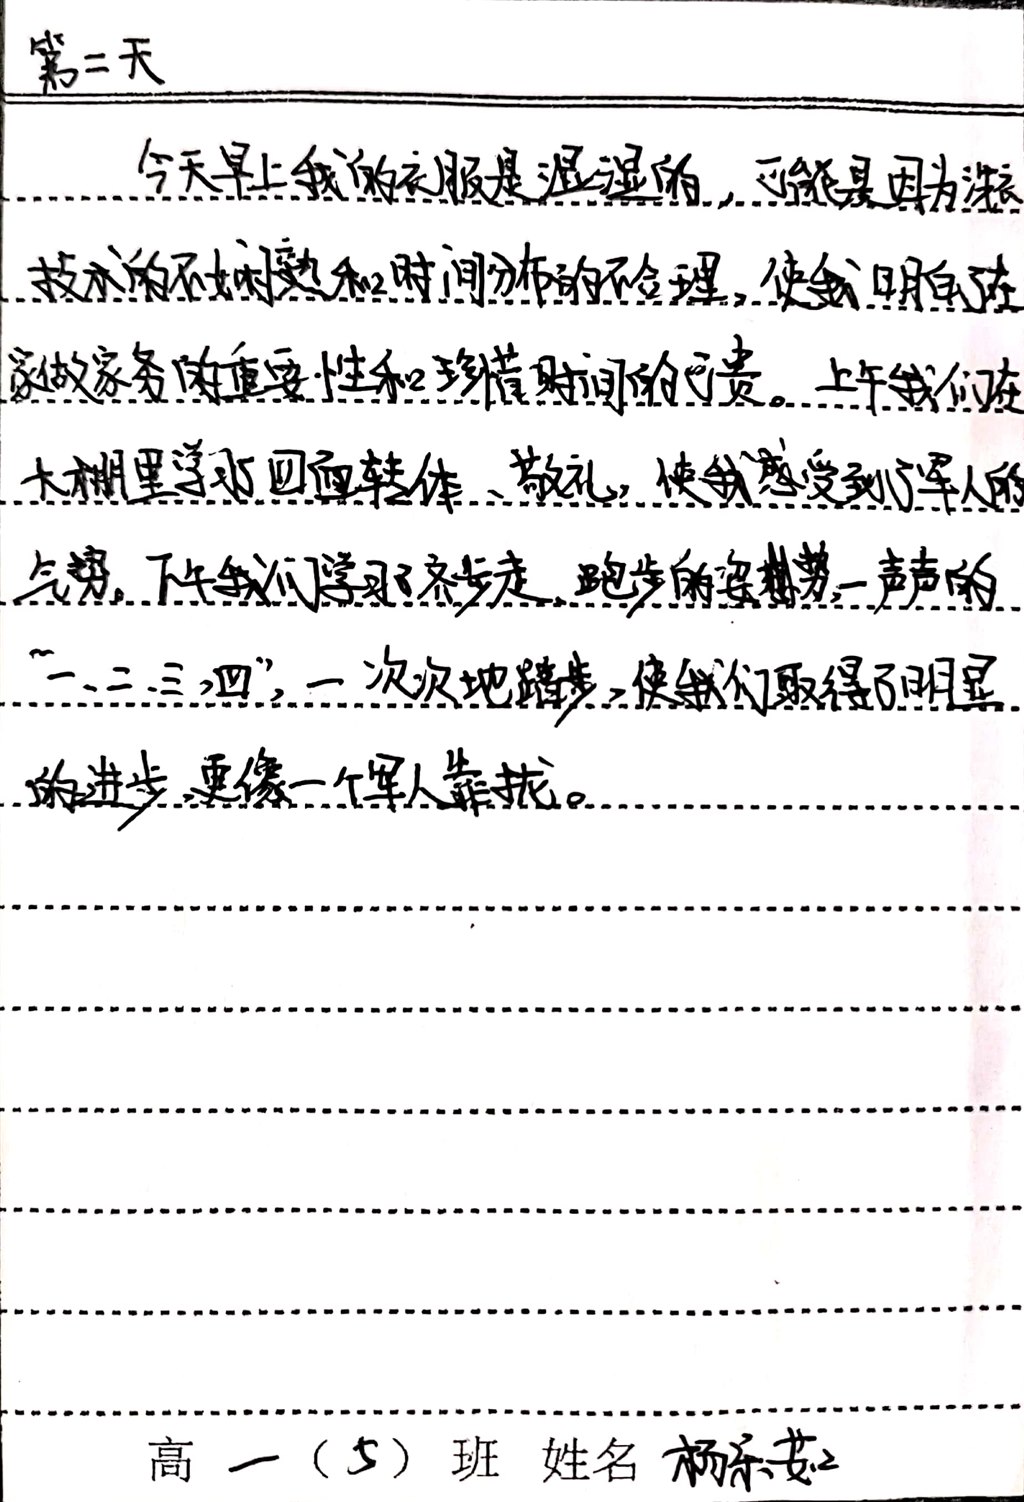 第二天
今天早上我的衣服是湿湿的，可能是因为洗衣
技术的不娴熟和时间分布的不合理，使我明白了在
家做家务的重要性和珍惜时间的可贵。上午我们在
大棚里学习四面转体、敬礼，使我感受到了军人的
气势。下午我们学习了齐步走、跑步的姿势，一声声的
“一、二、三、四”，一次次地踏步，使我们取得了明显
的进步，更像一个军人靠拢。
高一（5）班 姓名 杨乐